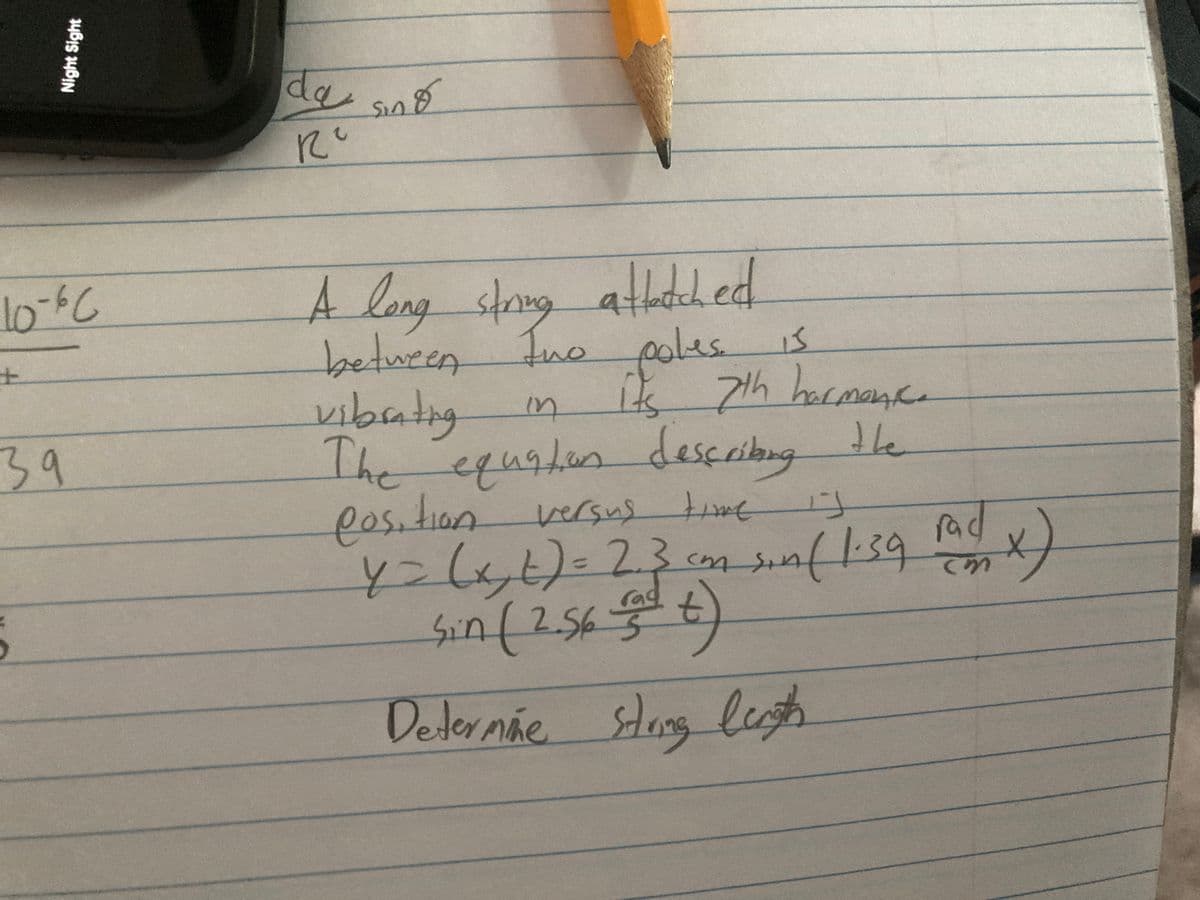 Night Sight
dq sin θ
R²
10⁻⁶C
+
39
A long string attatched
between two poles is
vibrating in its 7th harmonic.
The equation describing the
position versus time is
y = (x,t) = 2.3 cm sin( 1.39 rad/cm x)
sin( 2.56 rad/s t)
Determine string length